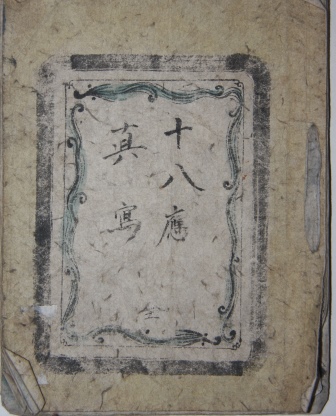 十八應
真寫
全